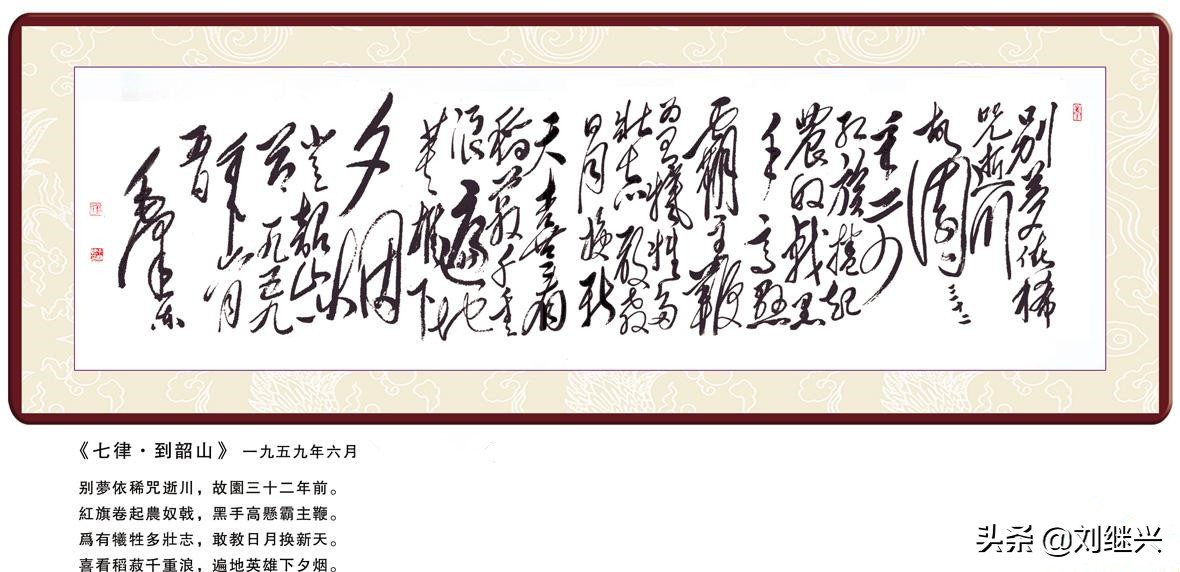 别梦依稀
咒逝川
故園三十二
年前
红旗捲起
農奴戟黑
手高懸
霸主鞭
为有犧牲多
壮志敢教
日月换新
天喜看
稻菽千重
浪遍地
英雄下
夕烟
韶山
一九五九
年六月
毛泽东
《七律·到韶山》 一九五九年六月
别夢依稀咒逝川，故園三十二年前。
紅旗卷起農奴戟，黑手高懸霸主鞭。
爲有犧牲多壯志，敢教日月换新天。
喜看稻菽千重浪，遍地英雄下夕烟。
头条 @刘继兴